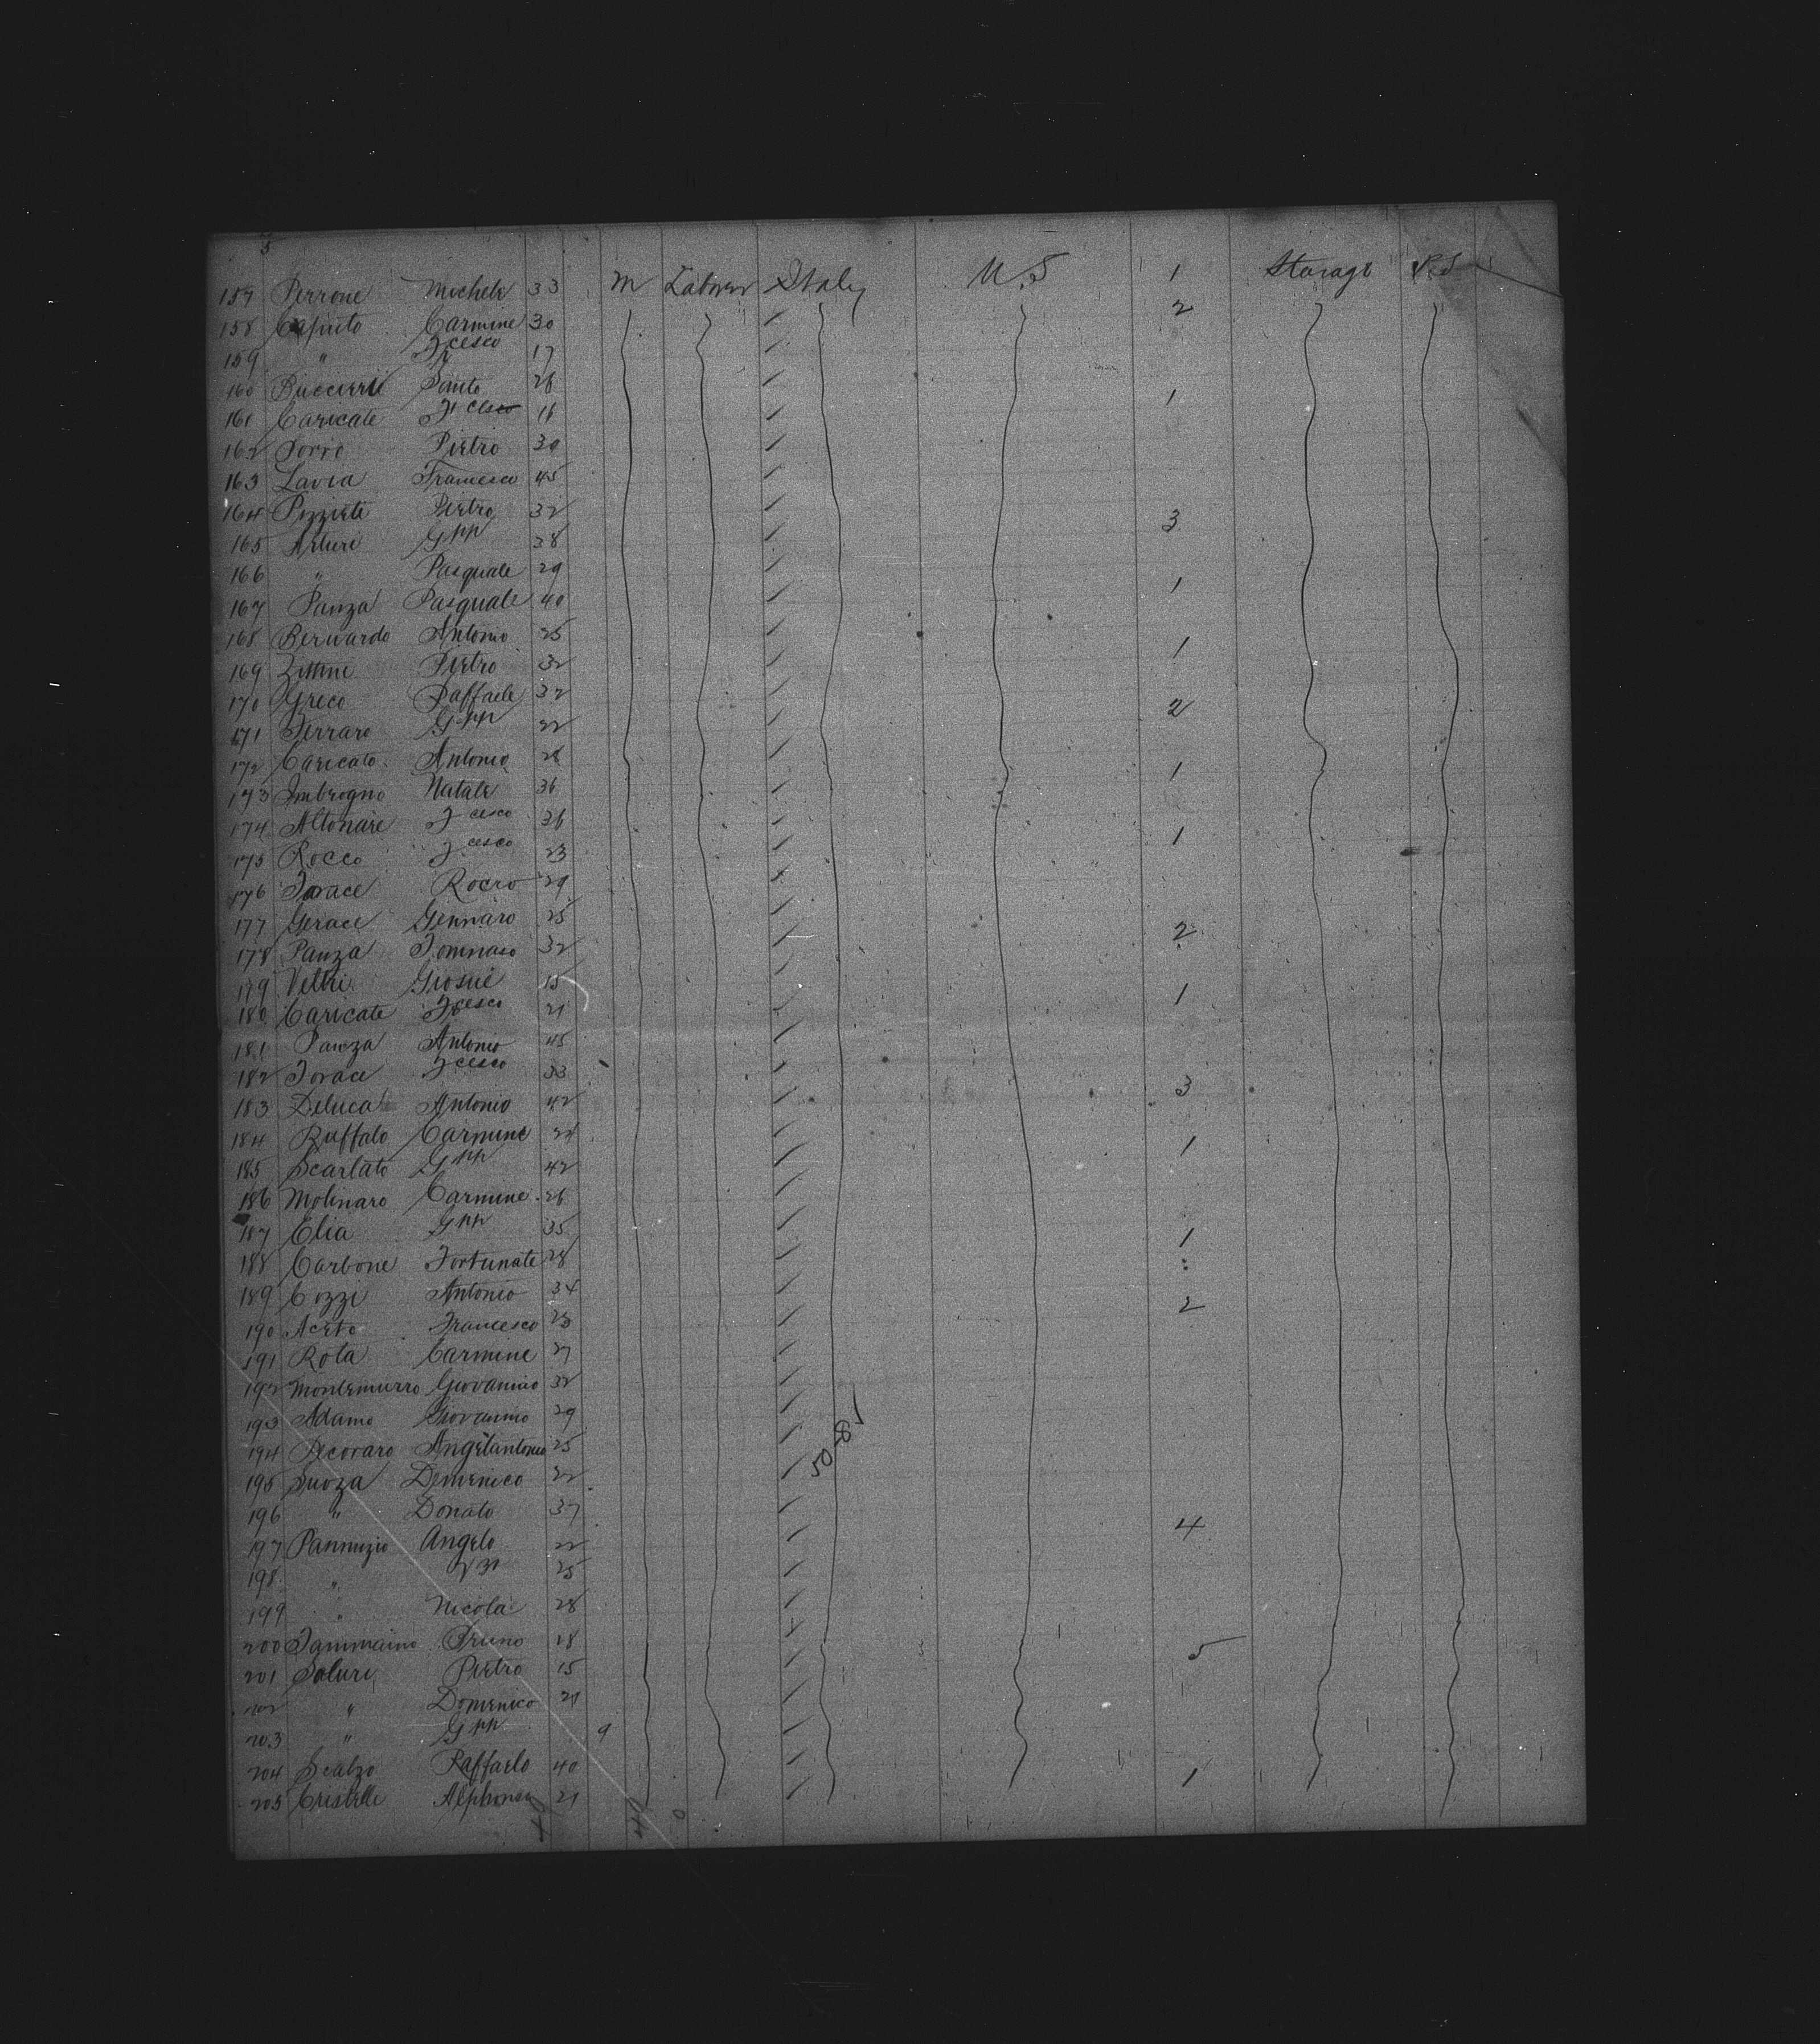 5
157 Perrone Michele 33 m Laborer Italy U.S 1 Starage P.S
158 Caputo Carmine 30 2
159 " Fr cesco 17
160 Santo 26
161 Caricate Fr cesco 1
162 Pietro 30
163 Lavia Francesco 45
164 Pizziete Pietro 32 3
165 Arture Gpp 38
166 " Pasquale 29
167 Panza Pasquale 40 1
168 Beruardo Antonio 25
169 Pietro 32 1
170 Greco Raffaele 32
171 Ferraro Gpp 22 2
172 Caricato Antonio
173 Imbrogno Natale 36 1
174 Altomare F cesco 36
175 Rocco F cesco 23 1
176 Rocco 29
177 Gerace Gennaro 25
178 Panza Tommaso 32 2
179 Veltri Giosuè 15
180 Caricate Fr cesco 21 1
181 Panza Antonio 45
182 Torace F cesco 33
183 Deluca Antonio 42 3
184 Ruffalo Carmine 24
185 Scarlato Gpp 42 1
186 Molinaro Carmine 26
187 Elia Gpp 35
188 Carbone Fortunate 28 1
189 Cozzi Antonio 34 :
190 Aceto Francesco 23 2
191 Rota Carmine 27
192 Montemurro Giovanino 32
193 Adamo Giovanino 29
194 Pecoraro Angelantonio 25
195 Suozza Domenico 22
196 " Donato 37
197 Pannuzio Angelo 22 4
198 " 25
199 " Nicola 28
200 Tammaino Bruno 18
201 Soluri Pietro 15 5
202 " Domenico 21
203 " Gpp 9
204 Scalzo Raffaelo 40
205 Cristelle Alphonse 21 1